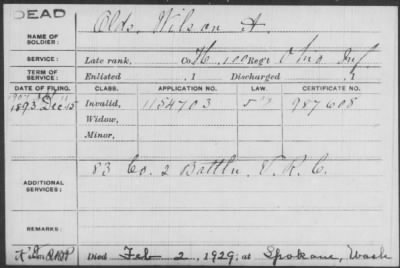 DEAD
NAME OF SOLDIER: Olds, Wilson A.
SERVICE: Late rank, Co. H, 100 Reg't Ohio Inf
TERM OF SERVICE: Enlisted , 1 Discharged , 1
DATE OF FILING. CLASS. APPLICATION NO. LAW. CERTIFICATE NO.
1893 Dec 15 Invalid, 1154703 987608
Widow,
Minor,
ADDITIONAL SERVICES: 83 Co. 2 Battln. V.R.C.
REMARKS:
Died Feb 2, 1929, at Spokane, Wash